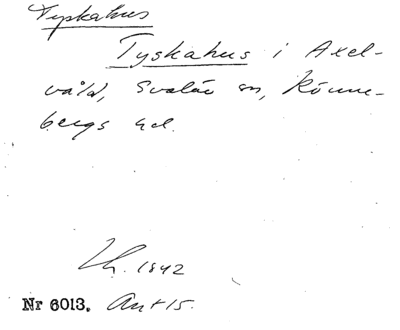 Tyskahus
Tyskahus i Axel-
våld, Svalöv sn, Rönne-
bergs hd.
1842
Nr 6013. Ant 15.